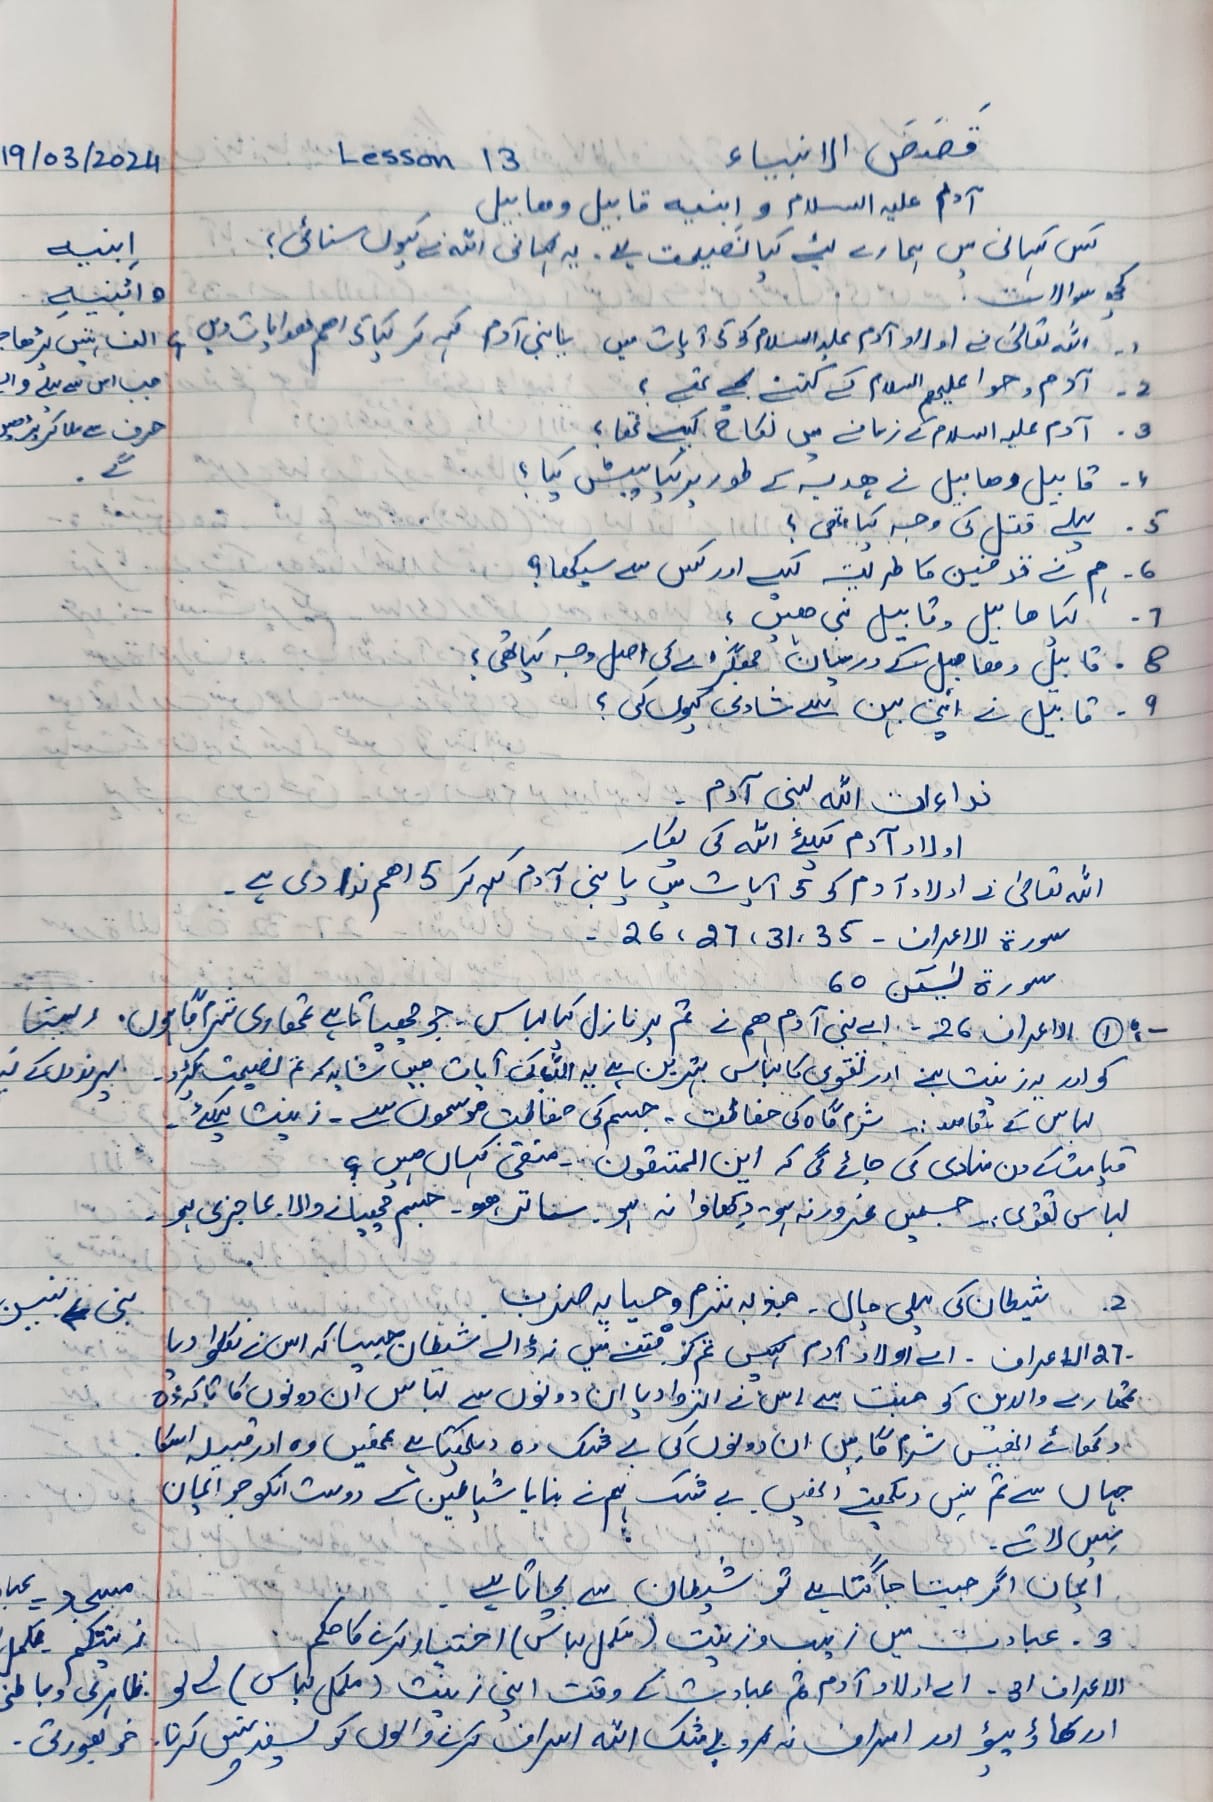 قَصَصَ الانبیاء Lesson 13 19/03/2024
آدم علیہ السلام و اِبنیہ قابیل وھابیل
کس کہانی میں ہمارے لیئے کیا نصیحت ہے۔ یہ کہانی اللہ نے کیوں سنائی؟
اِبنیہ
کچھ سوالات:
وابنیہ
1۔ اللہ تعالیٰ نے اولاد آدم علیہ السلام کو آیات میں یابنی آدم کہہ کر کیا اھم ھدایات دیں؟
الف نہیں پڑھا
جب اس سے پہلے وا
2۔ آدم وحوا علیھم السلام کے کتنے بچے تھے؟
حرف سے ملا کر پڑھیں
3۔ آدم علیہ السلام کے زمانے میں نکاح کیسے تھا؟
گے۔
4۔ قابیل وھابیل نے ھدیہ کے طور پر کیا پیش کیا؟
5۔ پہلے قتل کی وجہ کیا تھی؟
6۔ ہم نے تدفین کا طریقہ کیسے اور کس سے سیکھا؟
7۔ کیا ھابیل وقابیل نبی ھیں؟
8۔ قابیل وھابیل کے درمیان جھگڑے کی اصل وجہ کیا تھی؟
9۔ قابیل نے اپنی بہن سے شادی کیوں کی؟
نداءات اللہ لبنی آدم۔
اولاد آدم کیلئے اللہ کی پکار
اللہ تعالیٰ نے اولاد آدم کو 5 آیات میں یا بنی آدم کہہ کر 5 اھم ندا دی ہے۔
سورۃ الاعراف۔ 26، 27، 31، 35۔
سورۃ یٰسٓن 60
① الاعراف 26۔ اے بنی آدم ھم نے تم پر نازل کیا لباس۔ جو چھپاتا ہے تمھاری شرم گاہوں۔ ریشا
کو اور یہ زینت ہے اور تقویٰ کا لباس بہترین ہے یہ اللہ کی آیات میں شاید کہ تم نصیحت پکڑو۔ پرندوں کے
لباس کے مقاصد:۔ شرم گاہ کی حفاظت۔ جسم کی حفاظت موسموں سے۔ زینت کیلئے۔
قیامت کے دن منادی کی جائے گی کہ این المتقون۔ متقی کہاں ھیں؟
لباس تقویٰ:۔ جسمیں غرور نہ ہو۔ دکھاوا نہ ہو۔ ساتر ھو۔ جسم چھپانے والا۔ عاجزی ہو۔
2۔ شیطان کی پہلی چال۔ جذبہ شرم وحیا پہ ضرب۔
27 الاعراف۔ اے اولاد آدم کہیں تم کو فتنے میں نہ ڈالے شیطان جیسا کہ اس نے نکلوا دیا
تمھارے والدین کو جنت سے اس نے اتروا دیا ان دونوں سے لباس ان دونوں کا تاکہ وہ
دکھائے انھیں شرم گاہیں ان دونوں کی بے شک وہ دیکھتا ہے تمھیں وہ اور قبیلہ اسکا
جہاں سے تم نہیں دیکھتے انھیں۔ بے شک ہم نے بنایا شیاطین کے دوست انکو جو ایمان
نہیں لاتے۔
ایمان اگر جیتا جاگتا ہے تو شیطان سے بچاتا ہے۔
مسجد۔ عبا
3۔ عبادت میں زیب وزینت (مکمل لباس) اختیار کرنے کا حکم
زینتکم۔ مکمل
الاعراف 31۔ اے اولاد آدم تم عبادت کے وقت اپنی زینت (مکمل لباس) لے لو
ظاہری وباطنی
اور کھاؤ پیؤ اور اسراف نہ کرو بے شک اللہ اسراف کرنے والوں کو پسند نہیں کرتا۔
خوبصورتی۔